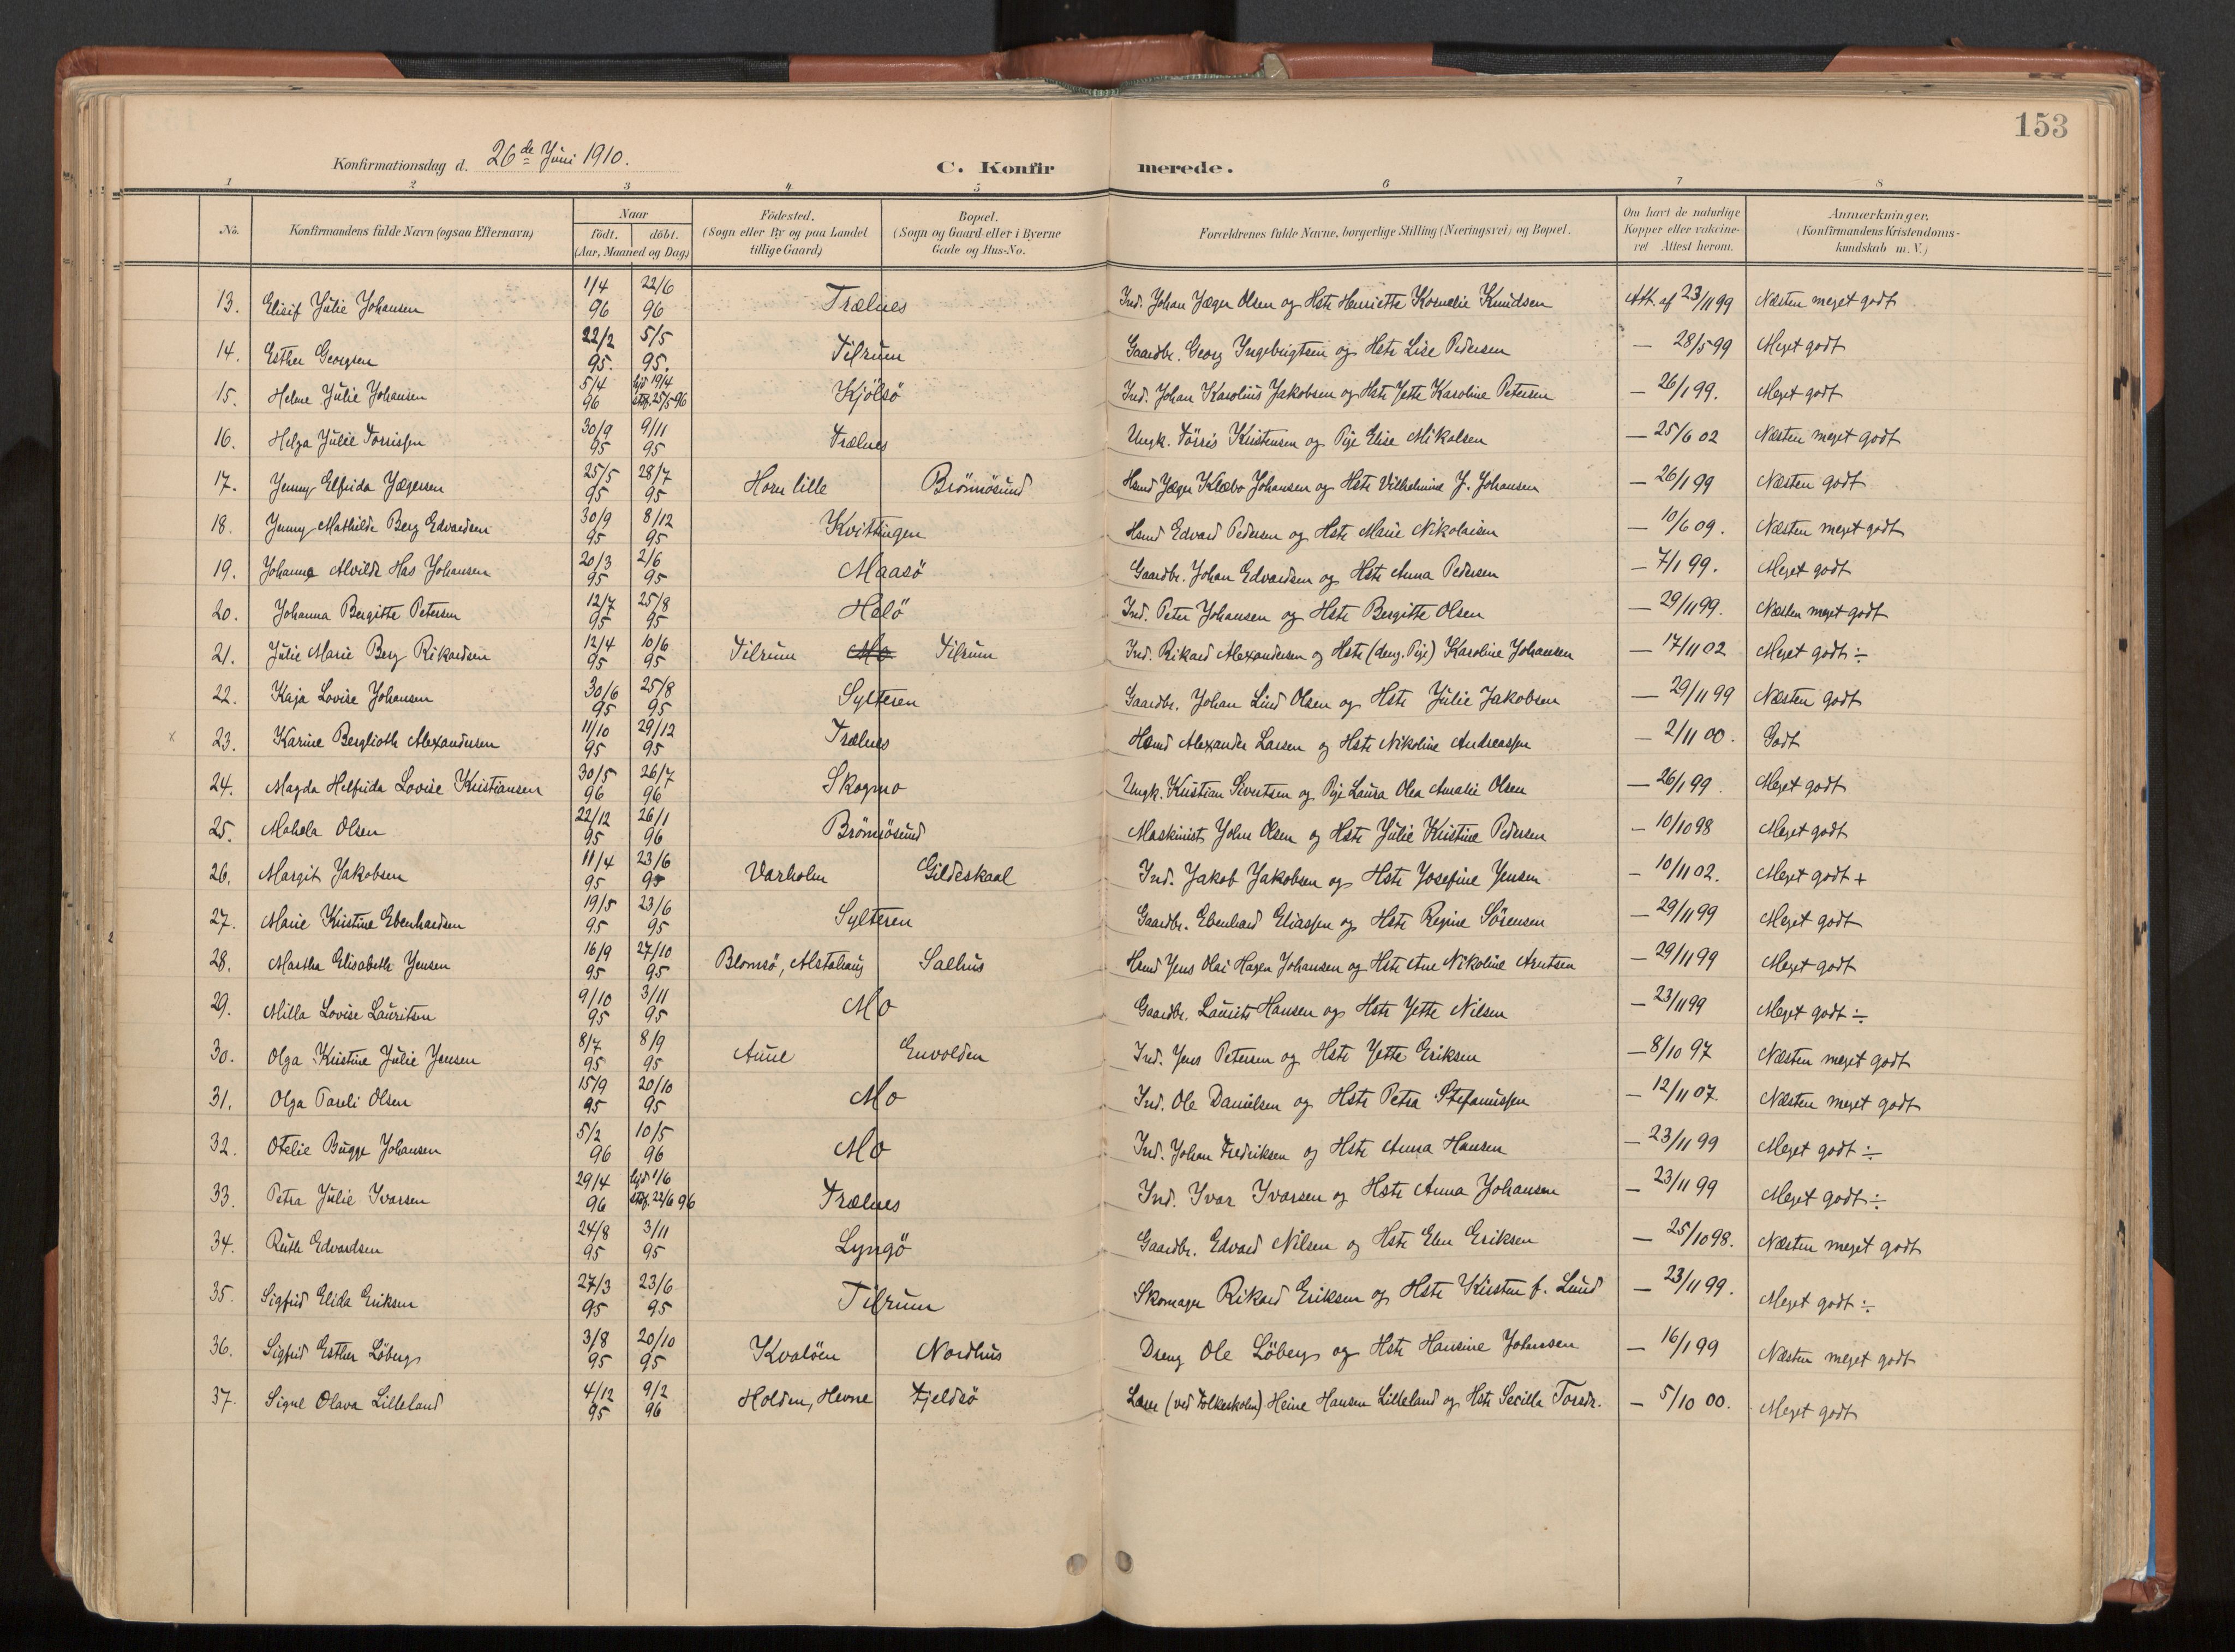 153
Konfirmationsdag d. 26de Juni 1910.
C. Konfirmerede.
1 2 3 4 5 6 7 8
No. Konfirmandens fulde Navn (ogsaa Efternavn) Naar födt. döbt. (Aar, Maaned og Dag.) Födested. (Sogn eller By og paa Landet tillige Gaard) Bopæl. (Sogn og Gaard eller i Byerne Gade og Hus-No. Forældrenes fulde Navne, borgerlige Stilling (Næringsvei) og Bopæl. Om havt de naturlige Kopper eller vakcineret Attest herom. Anmærkninger. (Konfirmandens Kristendomskundskab m. V.)
13. Elisif Julie Johansen 1/4 96 22/6 96 Trælnes Ind. Johan Jæger Olsen og Hstr Henriette Kornelie Knudsen Att. af 23/11 99 Næsten meget godt
14. Esther Georgsen 22/2 95. 5/5 95. Tilrum Gaardbr. Georg Ingebrigtsen og Hstr Lise Pedersen — 28/5 99 Meget godt
15. Helene Julie Johansen 5/4 96 hjd 19/4 stdf. 25/5 96 Kjölsö Ind. Johan Karolius Jakobsen og Hstr Jette Karoline Petersen — 26/1 99. Meget godt
16. Helga Julie Torrissen 30/9 95 9/11 95 Trælnes Ungk. Törris Kristensen og Pige Elise Mikalsen — 25/6 02 Næsten meget godt
17. Jenny Elfrida Jægersen 25/5 95 28/7 95 Horn lille Brönnösund Hsmd Jæger Klæbo Johansen og Hstr Vilhelmine J. Johansen — 26/1 99 Næsten godt
18. Jenny Mathilde Berg Edvardsen 30/9 95 8/12 95 Kvittingen Hsmd Edvard Pedersen og Hstr Marie Nikolaisen — 10/6 09. Næsten meget godt
19. Johanna Alvilde Has Johansen 20/3 95 2/6 95 Maasö Gaardbr. Johan Edvardsen og Hstr Anna Pedersen — 7/1 99. Meget godt
20. Johanna Bergitte Petersen 12/7 95 25/8 95 Helö Ind. Peter Johansen og Hstr Bergitte Olsen — 29/11 99. Næsten meget godt
21. Julie Marie Berg Rikardsen 12/4 95 10/6 95 Tilrum Mo Tilrum Ind. Rikard Alexandersen og Hstr (deng. Pige) Karoline Johansen — 17/11 02 Meget godt ÷
22. Kaja Lovise Johansen 30/6 95 25/8 95 Sylteren Gaardbr. Johan Lind Olsen og Hstr Julie Jakobsen — 29/11 99 Næsten godt
x 23. Karine Berglioth Alexandersen 11/10 95 29/12 95 Trælnes Hsmd Alexander Larsen og Hstr Nikoline Andreassen — 2/11 00. Godt
24. Magda Helfrida Lovise Kristiansen 30/5 96 26/7 96 Skogmo Ungk. Kristian Sivertsen og Pige Laura Olea Amalie Olsen — 26/1 99. Meget godt
25. Mahela Olsen 22/12 95 26/1 96 Brönnösund Maskinist John Olsen og Hstr Julie Kristine Pedersen — 10/10 98 Meget godt
26. Margit Jakobsen 11/4 95 23/6 95 Varholm Gildeskaal Ind. Jakob Jakobsen og Hstr Josefine Jensen — 10/11 02. Meget godt +
27. Marie Kristine Ebenhardsen 19/5 95 23/6 95 Sylteren Gaardbr. Ebenhard Eliassen og Hstr Regine Sörensen — 29/11 99 Meget godt
28. Martha Elisabeth Jensen 16/9 95 27/10 95 Blomsö, Alstahaug Salhus Hsmd Jens Olai Hagen Johansen og Hstr Ane Nikoline Arntsen — 29/11 99 Meget godt
29. Milla Lovise Lauritsen 9/10 95 3/11 95 Mo Gaardbr. Laurits Hansen og Hstr Jette Nilsen — 23/11 99 Meget godt ÷
30. Olga Kristine Julie Jensen 8/7 95 8/9 95 Aune Envolden Ind. Jens Petersen og Hstr Jette Eriksen — 8/10 97 Næsten meget godt
31. Olga Pareli Olsen 15/9 95 20/10 95 Mo Ind. Ole Danielsen og Hstr Petra Stefanussen — 12/11 07. Næsten meget godt
32. Otelie Bugge Johansen 5/2 96 10/5 96 Mo Ind. Johan Fredriksen og Hstr Anna Hansen — 23/11 99 Meget godt ÷
33. Petra Julie Ivarsen 29/4 96 hjd 1/6 stdf. 22/6 96 Trælnes Ind. Ivar Ivarsen og Hstr Anna Johansen — 23/11 99 Meget godt ÷
34. Ruth Edvardsen 24/8 95 3/11 95 Lyngö Gaardbr. Edvard Nilsen og Hstr Elen Eriksen — 25/10 98. Næsten meget godt
35. Sigfrid Elida Eriksen 27/3 95 23/6 95 Tilrum Skomager Rikard Eriksen og Hstr Kirsten f. Lund — 23/11 99. Meget godt ÷
36. Sigfrid Esther Löberg 3/8 95 20/10 95 Kvalöen Nordhus Dreng Ole Löberg og Hstr Hansine Johansen — 16/1 99 Næsten meget godt
37. Signe Olava Lilleland 4/12 95 9/2 96 Holden, Hevne Fjeldsö Lærer (ved Folkeskolen) Heine Hansen Lilleland og Hstr Secilla Torsdr. — 5/10 00. Meget godt